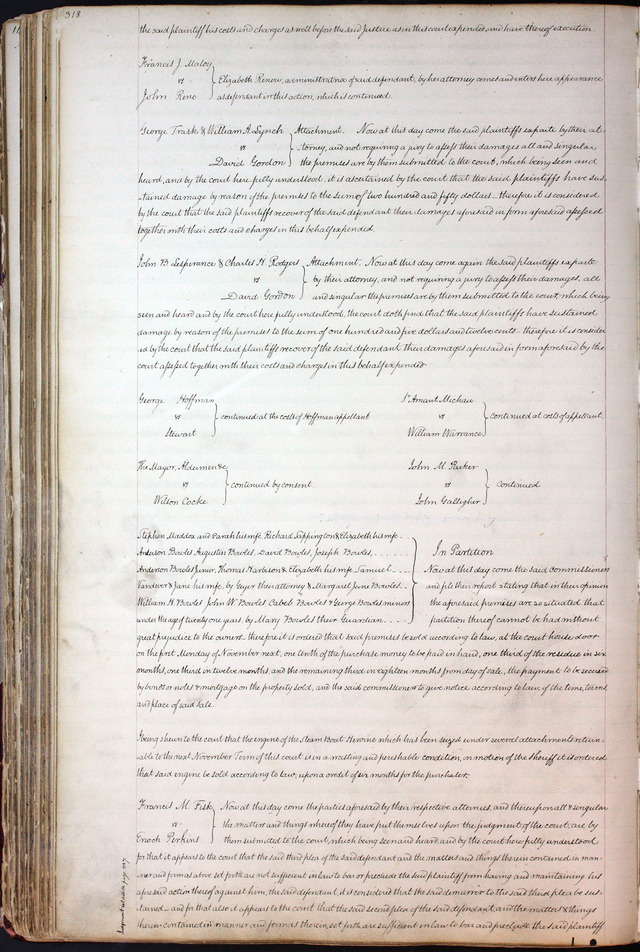 318
the said plaintiff his costs and charges as well before the said Justice as in this court expended, and have thereof execution.
Francis J. Maloy
vs
John Reno
Elizabeth Renow, administratrix of said defendant, by her attorney comes and enters here appearance
as defendant in this action, which is continued.
George Trask & William A. Lynch
vs
David Gordon
Attachment. Now at this day come the said plaintiffs exparte by their at-
torney, and not requiring a jury to assess their damages all and singular
the premises are by them submitted to the court, which being seen and
heard, and by the court here fully understood, it is ascertained by the court that the said plaintiffs have sus-
tained damage by reason of the premises to the sum of two hundred and fifty dollars – therefore it is considered
by the court that the said plaintiffs recover of the said defendant their damages aforesaid in form aforesaid assessed
together with their costs and charges in this behalf expended.
John B. Lesperance & Charles H. Rodgers
vs
David Gordon
Attachment. Now at this day come again the said plaintiffs exparte
by their attorney, and not requiring a jury to assess their damages, all
and singular the premises are by them submitted to the court, which being
seen and heard and by the court here fully understood, the court doth find that the said plaintiffs have sustained
damage by reason of the premises to the sum of one hundred and five dollars and twelve cents – therefore it is consider-
ed by the court that the said plaintiffs recover of the said defendant their damages aforesaid in form aforesaid by the
court assessed together with their costs and charges in this behalf expended
George Hoffman
vs
Stewart
continued at the costs of Hoffman appellant
St Amant Michau
vs
William Warrance
continued at costs of appellant.
The Mayor, Aldermen &c
vs
Wilson Cocke
continued by consent.
John M. Parker
vs
John Gallagher
continued
Stephen Maddox and Sarah his wife, Richard Sappington & Elizabeth his wife
Anderson Bowles, Augustus Bowles, David Bowles, Joseph Bowles,
Anderson Bowles Junior, Thomas Harbison & Elizabeth his wife, Samuel
Vandever & Jane his wife, by Geyer their attorney & Margaret Jane Bowles
William H. Bowles John W Bowles Caleb Bowles & George Bowles minors
under the age of twenty one years, by Mary Bowles their Guardian.
In Partition
Now at this day come the said commissioners
and file their report stating that in their opinion
the aforesaid premises are so situated that
partition thereof cannot be had without
great prejudice to the owners – therefore it is ordered that said premises be sold according to law, at the court house door
on the first Monday of November next, one tenth of the purchase money to be paid in hand, one third of the residue in six
months, one third in twelve months, and the remaining third in eighteen months from day of sale, the payment to be secured
by bonds or notes & mortgage on the property sold, and the said commissioners to give notice according to law, of the time, terms,
and place of said sale.
It being shewn to the court that the engine of the Steam Boat Heroine which has been seized under several attachments return-
able to the next November Term of this court is in a wasting and perishable condition, on motion of the Sheriff it is ordered
that said engine be sold according to law, upon a credit of six months for the purchaser.
Francis M. Fisk
vs
Enoch Perkins
Now at this day come the parties aforesaid by their respective attornies, and thereupon all & singular
the matter and things whereof they have put themselves upon the judgment of the court, are by
them submitted to the court, which being seen and heard, and by the court here fully understood
for that it appears to the court that the said third plea of the said defendant and the matters and things therein contained in man-
ner and form as above set forth are not sufficient in law to bar or preclude the said plaintiff from having and maintaining his
aforesaid action thereof against him, the said defendant, it is considered that the said demurrer to the said third plea be sus-
tained – and for that also it appears to the court that the said second plea of the said defendant, and the matters & things
therein contained in manner and form as therein set forth are sufficient in law to bar and preclude the said plaintiff